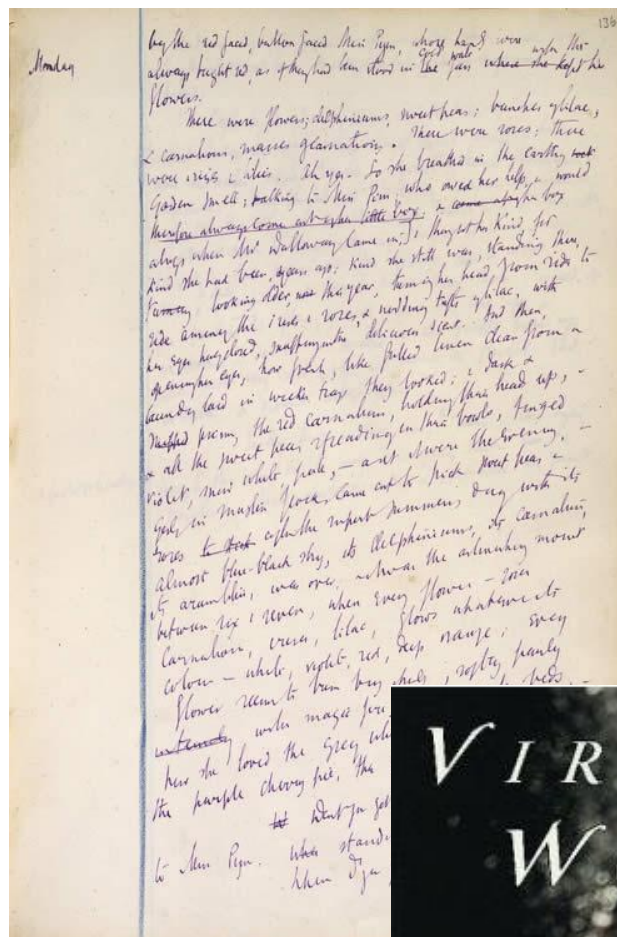 136
Monday
by the red faced, button faced Miss Pym, whose hands were
always bright red, as if they had been stood in cold water with the
flowers.
There were flowers; delphiniums, sweet peas; bunches of lilac,
& carnations, masses of carnations. There were roses; there
were irises & lilies. Ah yes. So she breathed in the earthy
garden smell; talking to Miss Pym, who owed her help, & would
therefore always come out of her little box;
always when Mrs Dalloway came in; & thought her kind, for
kind she had been, years ago; kind she still was, standing there,
looking older, this year, turning her head from side to
side among the irises & roses & nodding tufts of lilac, with
her eyes half closed, snuffing in the delicious scent. And then,
opening her eyes, how fresh, like frilled linen clean from a
laundry laid in wicker trays they looked; & dark &
prim, the red carnations, holding their heads up, -
& all the sweet peas spreading in their bowls, tinged
violet, snow white, pale, - as if it were the evening, -
girls in muslin frocks came out to pick sweet peas &
roses after the superb summers day with its
almost blue-black sky, its delphiniums, its carnations,
its arum lilies, was over; it was the moment
between six & seven, when every flower - roses
carnations, irises, lilac, glows whatever its
colour - white, violet, red, deep orange; every
flower seems to burn by itself, softly, purely
how she loved the grey
the purple cherry pie, the
to Miss Pym. stand
When
VIR
W